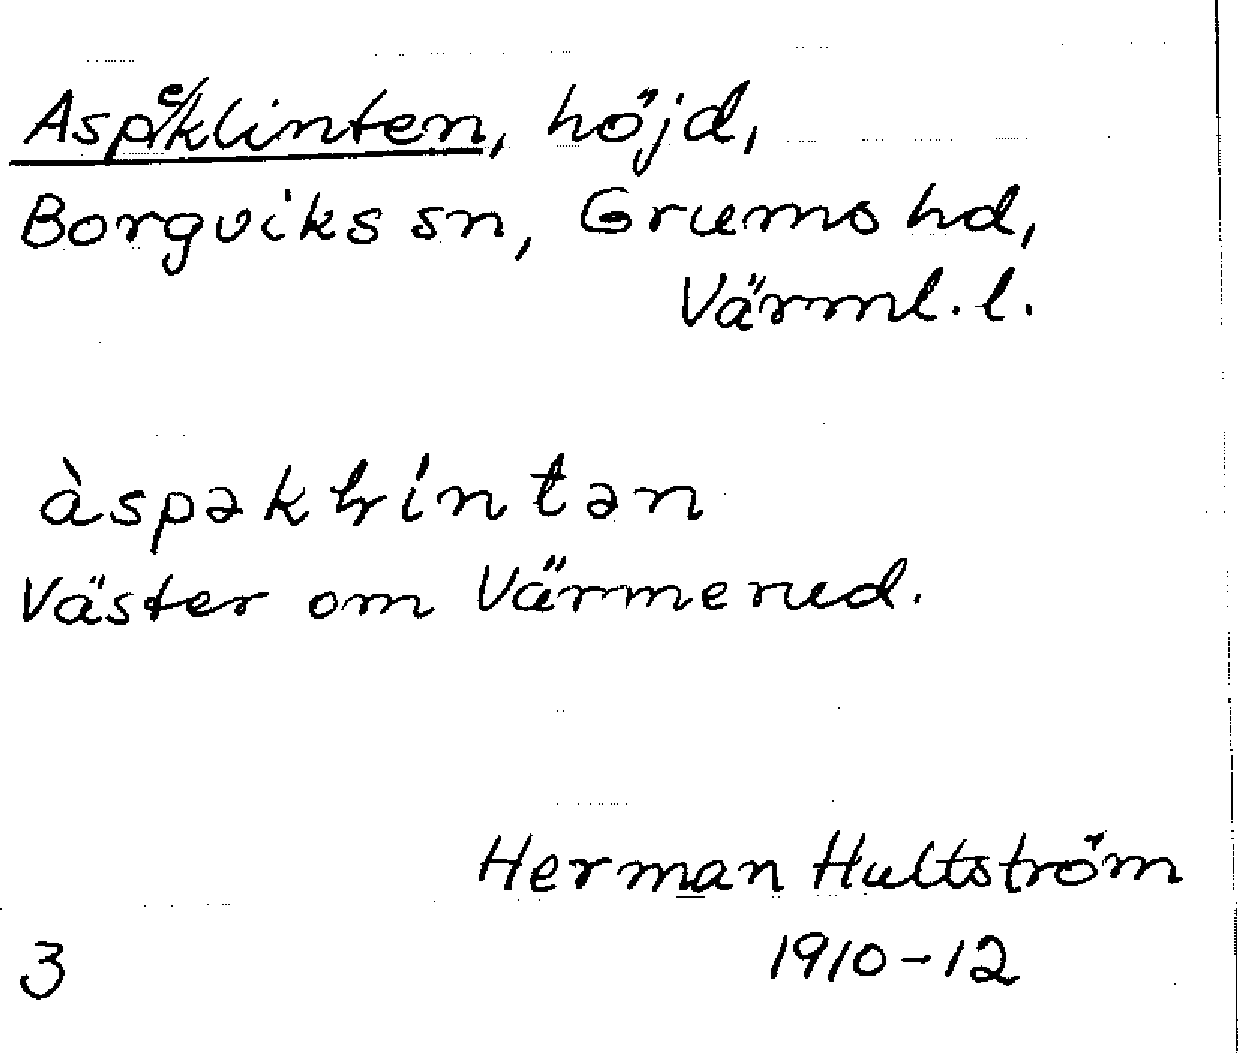 Aspeklinten, höjd,
Borgviks sn, Grums hd,
Värml. l.
àspəklíntən
Väster om Värmerud.
Herman Hultström
3
1910-12